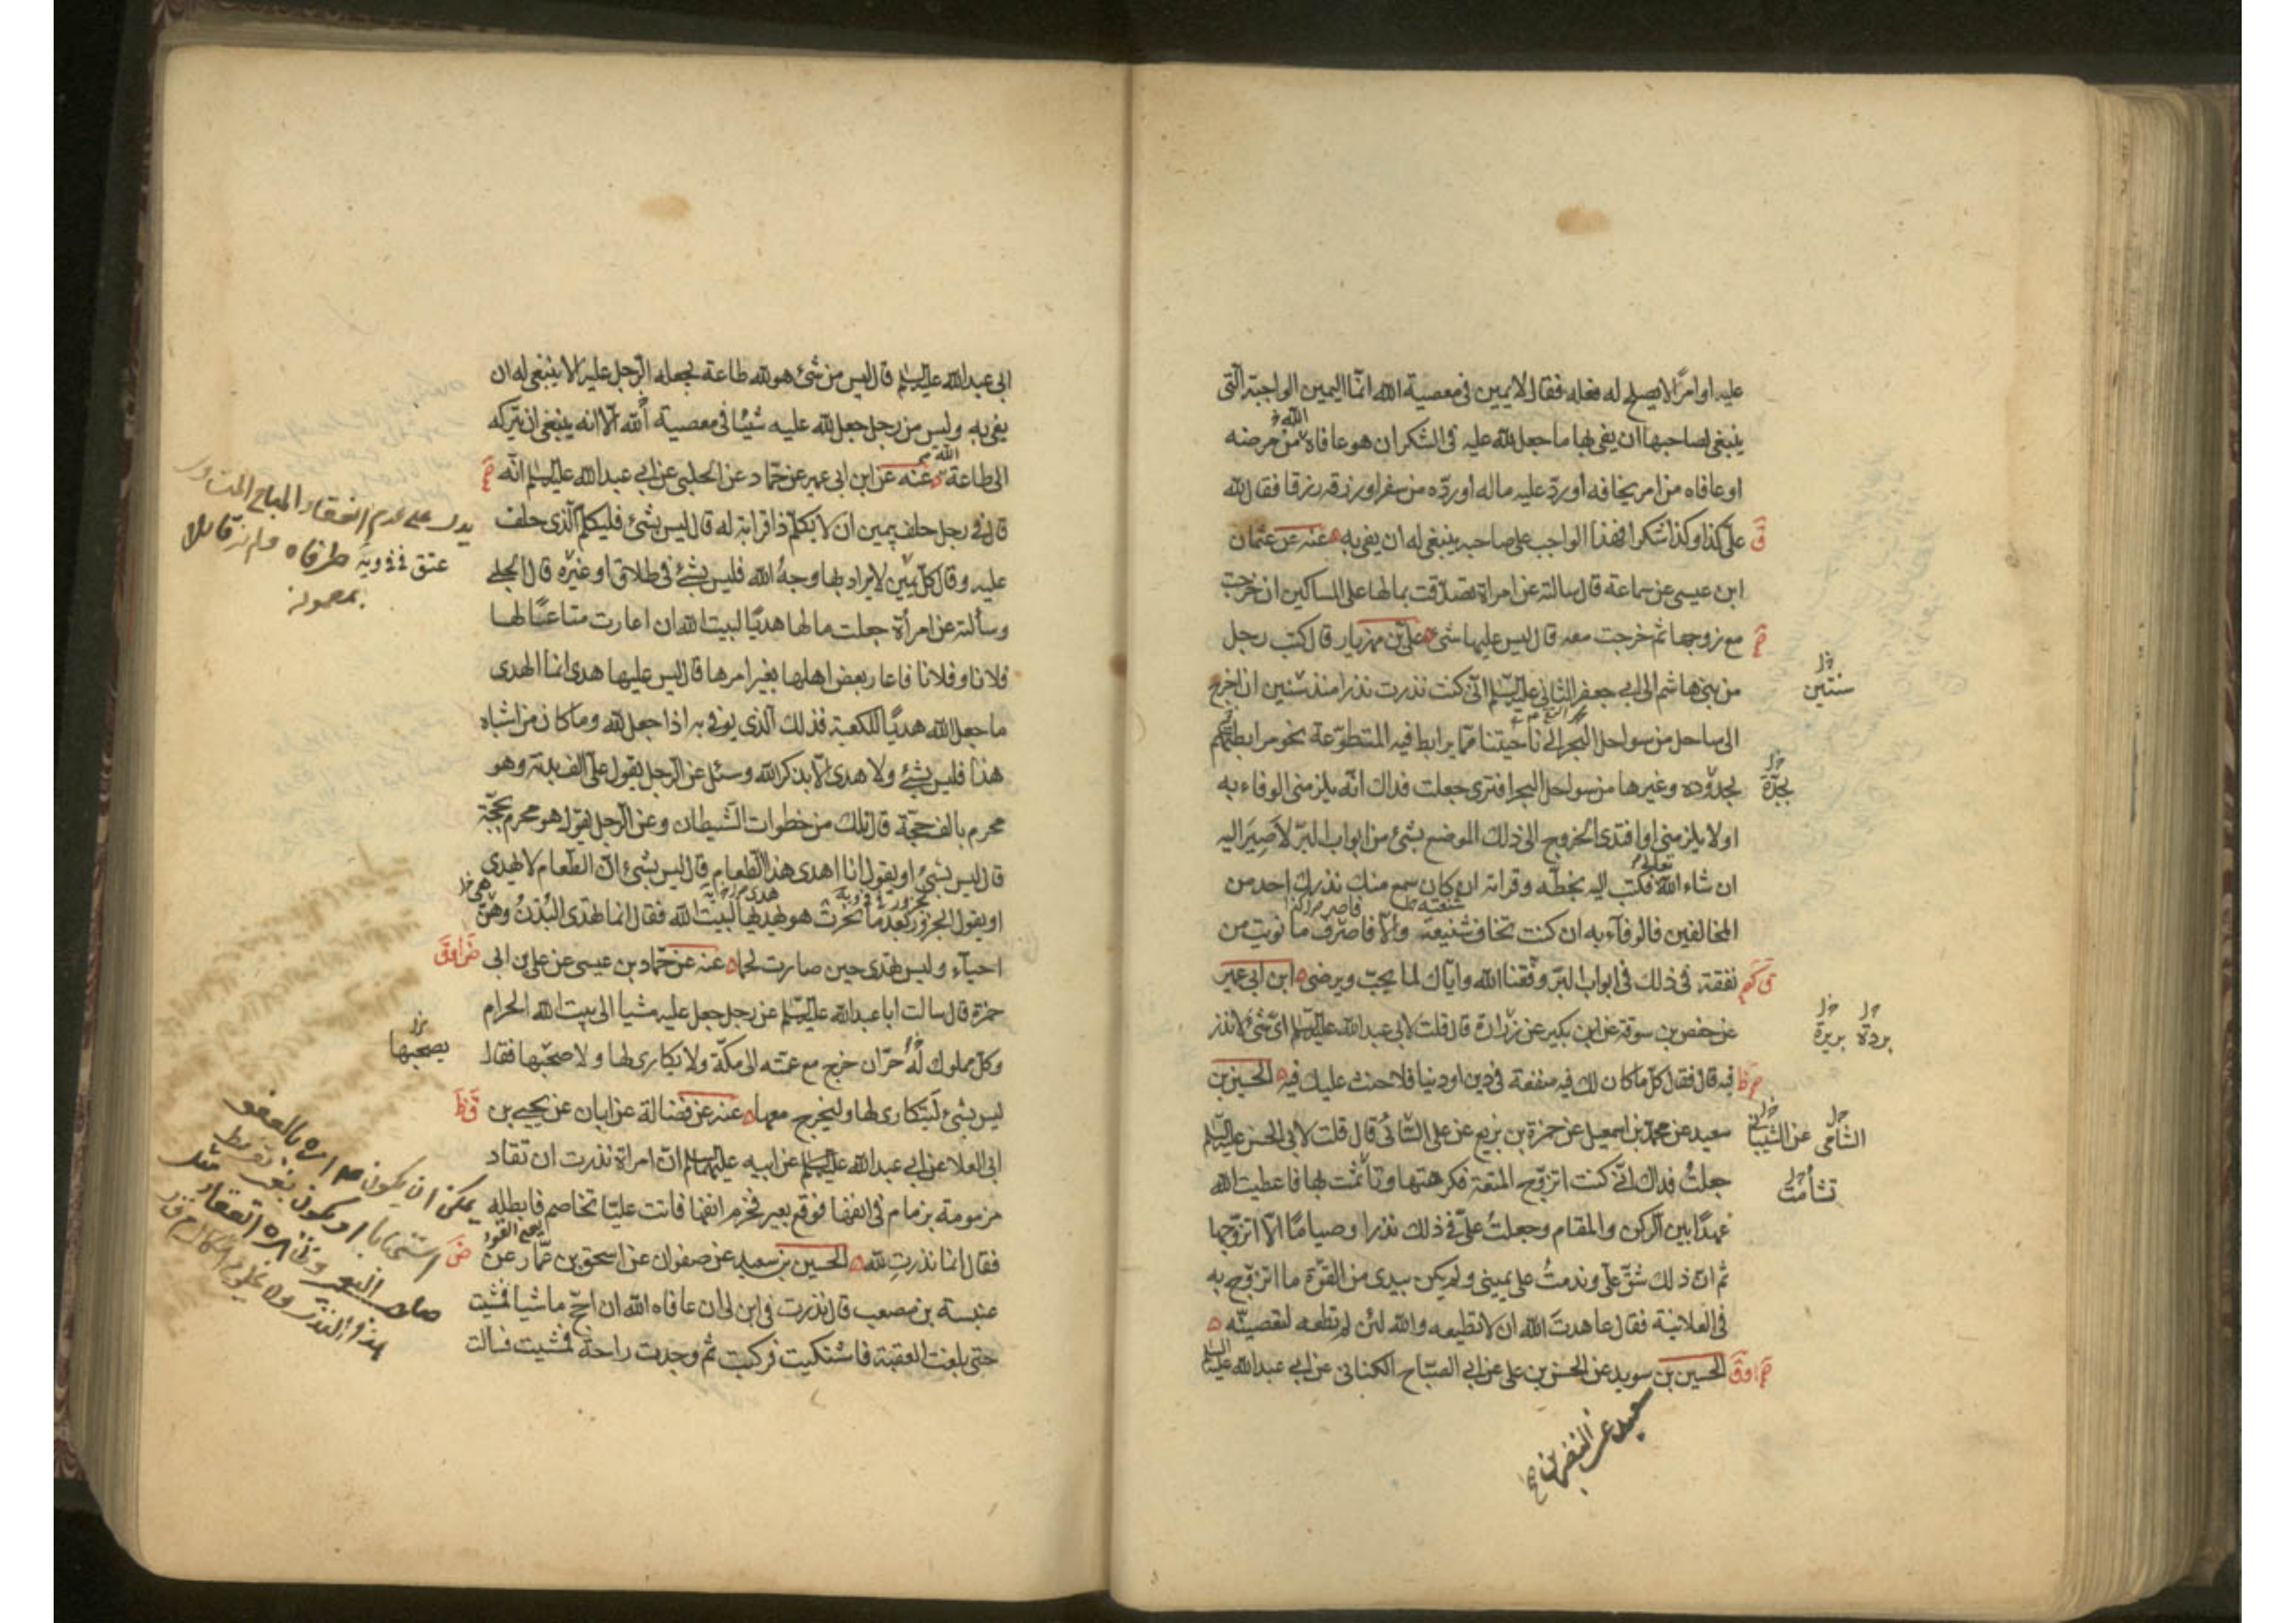 عليه او امرًا لا يصلح له فعله فقال لا يمين فى معصية الله انّما اليمين الواجبة الّتى
الله خ
ينبغى لصاحبها ان يفى بها ما جعل لله عليه فى الشكر ان هو عافاه من مرضه
او عافاه من امر يخافه او ردّ عليه ماله او ردّه من سفر او رزقه رزقا فقال لله
علىّ كذا وكذا شكرا فهذا الواجب على صاحبه ينبغى له ان يفى به عنه عن عثمان
ق
ابن عيسى عن سماعة قال سالته عن امراة تصدّقت بمالها على المساكين ان خرجت
مع زوجها ثم خرجت معه قال ليس عليها شىء علىّ بن مهزيار قال كتب رجل
من بنى هاشم الى ابى جعفر الثانى عليه السلم انّى كنت نذرت نذرا منذ سنين ان اخرج
سنتين
الى ساحل من سواحل البحر الى ناحيتنا ممّا يرابط فيه المتطوّعة نحو مرابطتهم
بجدّه وغيرها من سواحل البحر افترى جعلت فداك انّه يلزمنى الوفاء به
بجدّة
او لا يلزمنى او افتدى الخروج الى ذلك الموضع بشىء من ابواب البرّ لاصير اليه
تعالى
ان شاء الله فكتب اليه بخطّه وقراته ان كان سمع منك نذرك احد من
المخالفين فالوفآء به ان كنت تخاف شنيعة والّا فاصرف ما نويت من
نفقة فى ذلك فى ابواب البرّ وفّقنا الله وايّاك لما يحبّ ويرضى ابن ابى عمير
عن حفص بن سوقة عن ابن بكير عن زرارة قال قلت لابى عبدالله عليه السلم اىّ شىء لا نذر
بردة بريرة
فيه قال فقال كلّ ما كان لك فيه منفعة فى دين او دنيا فلا حنث عليك فيه الحسين بن
سعيد عن محمّد بن اسمعيل عن حمزة بن بزيع عن على السّائى قال قلت لابى الحسن عليه السلم
الشامى عن الشيبانى
جعلتُ فداك انّى كنت اتزوّج المتعة فكرهتها وتأثّمت بها فاعطيت الله
تشأمت
عهدًا بين الركن والمقام وجعلتُ علىّ فى ذلك نذرا وصيامًا الّا اتزوّجها
ثم انّ ذلك شقّ علىّ وندمتُ على يمينى ولم يكن بيدى من القوّة ما اتزوّج به
فى العلانية فقال عاهدتَ الله ان لا تطيعه والله لئن لم تطعه لتعصينّه
الحسين بن سويد عن الحسن بن على عن ابى الصبّاح الكنانى عن ابى عبدالله عليه السلم
سعيد عن النضر بن
ابى عبدالله عليه السلم قال ليس من شىء هو لله طاعة يجعله الرّجل عليه الا ينبغى له ان
يفى به وليس من رجل جعل لله عليه شيئا فى معصية الله الّا انه ينبغى ان يتركه
الى طاعة الله عنه عن ابن ابى عمير عن حمّاد عن الحلبى عن ابى عبدالله عليه السلم انّه
قال فى رجل حلف بيمين ان لا يكلّم ذا قرابة له قال ليس بشىء فليكلّم الّذى حلف
يدل على عدم انعقاد المباح
عليه وقال كلّ يمين لا يراد بها وجهُ الله فليس بشىء فى طلاق او غيره قال الحلبى
وسألته عن امرأة جعلت مالها هديًا لبيت الله ان اعارت متاعًا لها
فلانا وفلانا فاعار بعض اهلها بغير امرها قال ليس عليها هدى انما الهدى
ما جعل الله هديًا للكعبة فذلك الّذى يوفى به اذا جعل لله وما كان من اشباه
هذا فليس بشىء ولا هدى الّا بذكر الله وسئل عن الرجل يقول علىّ الف بدنة وهو
محرم بالف حجّة قال تلك من خطوات الشّيطان وعن الرجل يقول هو محرم بحجّة
قال ليس بشىء او يقول انا اهدى هذا الطّعام قال ليس بشىء انّ الطّعام لا يهدى
او يقول الجزور بعد ما نحرت هو يهديها لبيت الله فقال انما تهدى البُدْنُ وهنّ
احيآء وليس تهدى حين صارت لحما عنه عن حمّاد بن عيسى عن على بن ابى
حمزة قال سالت ابا عبدالله عليه السلم عن رجل جعل عليه مشيا الى بيت الله الحرام
وكلّ مملوك له حرّ ان خرج مع عمّته الى مكّة ولا يكارى لها ولا صحبها فقال
يصحبها
ليس بشىء ليتكارى لها وليخرج معها عنه عن فضالة عن ابان عن يحيى بن
ابى العلا عن ابى عبدالله عليه السلم عن ابيه عليهما السلم انّ امراة نذرت ان تقاد
مزمومة بزمام فى انفها فوقع بعير فخرم انفها فاتت عليّا تخاصم فابطله
فقال انما نذرتِ لله الحسين بن سعيد عن صفوان عن اسحق بن عمّار عن
عنبسة بن مصعب قال نذرت فى ابن لى ان عافاه الله ان احجّ ماشيا فمشيت
حتى بلغت العقبة فاشتكيت فركبت ثم وجدت راحة فمشيت فسالت